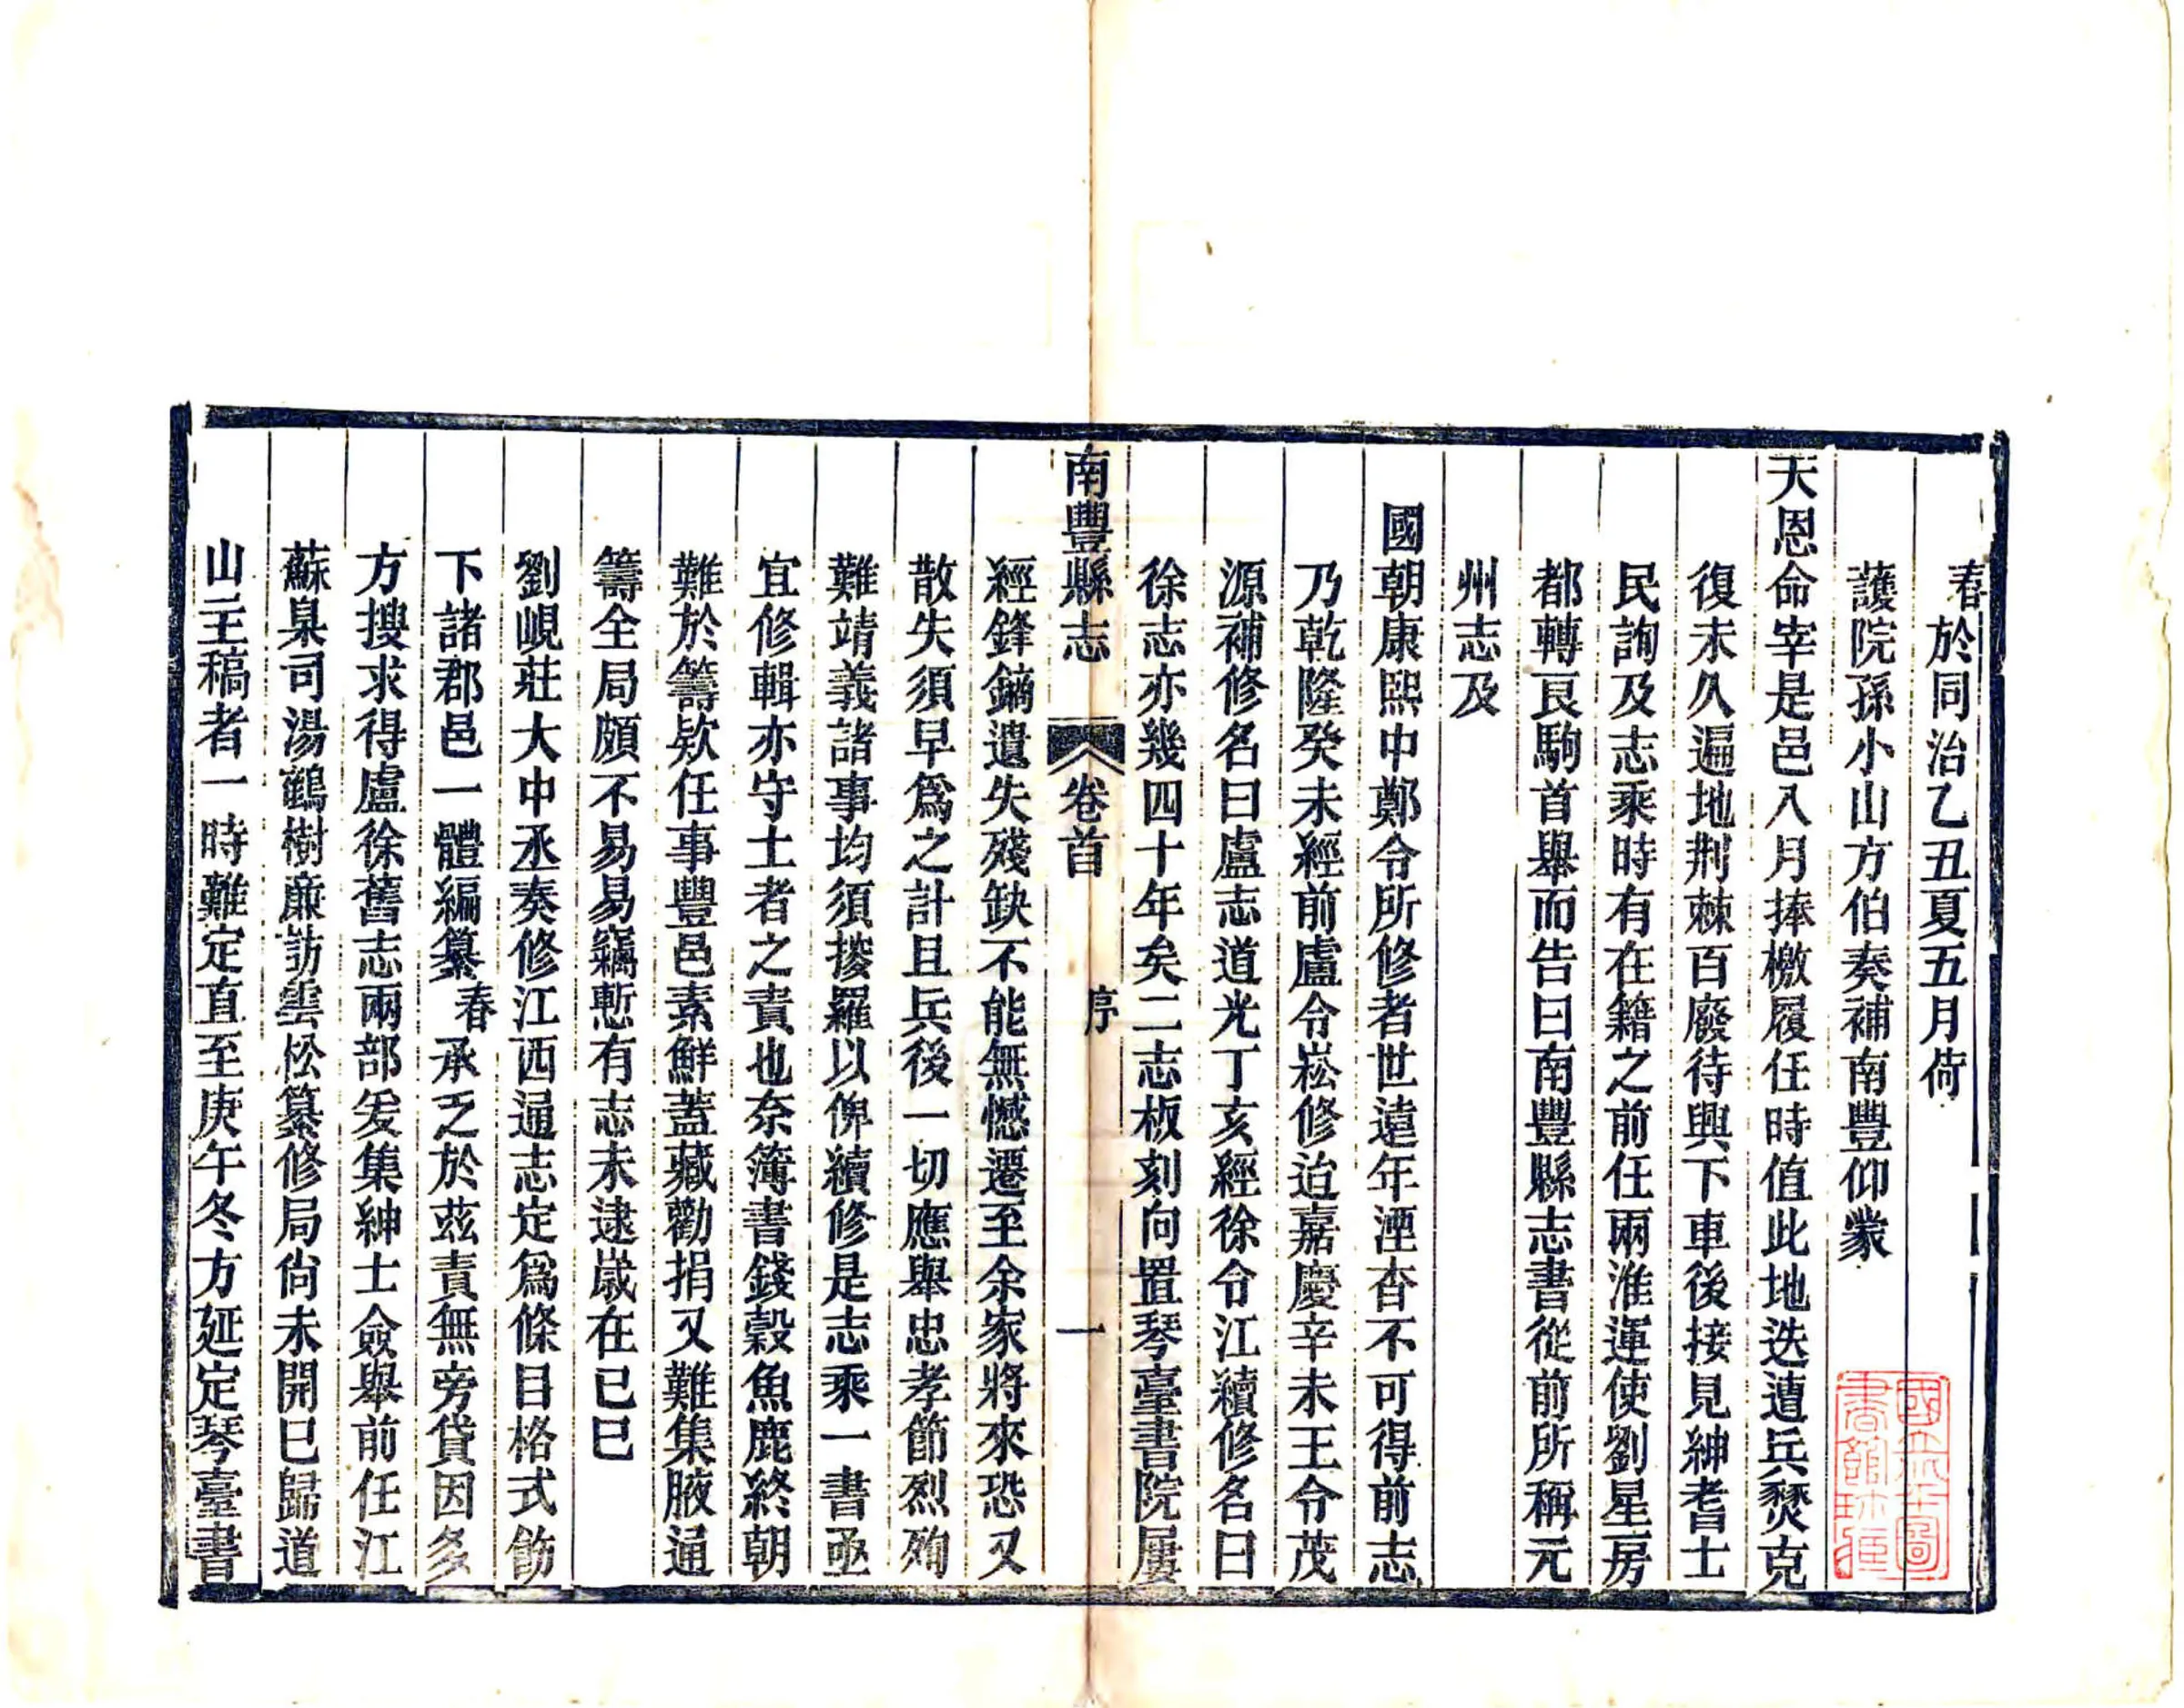 春於同治乙丑夏五月荷
護院孫小山方伯奏補南豐仰蒙
天恩命宰是邑八月捧檄履任時值此地迭遭兵燹克
復未久遍地荆棘百廢待興下車後接見紳耆士
民詢及志乘時有在籍之前任兩淮運使劉星房
都轉良駒首舉而告曰南豐縣志書從前所稱元
州志及
國朝康熙中鄭令所修者世遠年湮杳不可得前志
乃乾隆癸未經前盧令崧修迨嘉慶辛未王令茂
源補修名曰盧志道光丁亥經徐令江續修名曰
徐志亦幾四十年矣二志板刻向置琴臺書院屢
南豐縣志 卷首 序 一
經鋒鏑遺失殘缺不能無憾遷至余家將來恐又
散失須早爲之計且兵後一切應舉忠孝節烈殉
難靖義諸事均須搜羅以俾續修是志乘一書亟
宜修輯亦守土者之責也奈簿書錢穀魚鹿終朝
難於籌欵任事豐邑素鮮蓋藏勸捐又難集腋通
籌全局頗不易易竊慙有志未逮歲在己巳
劉峴莊大中丞奏修江西通志定爲條目格式飭
下諸郡邑一體編纂春承乏於茲責無旁貸因多
方搜求得盧徐舊志兩部爰集紳士僉舉前任江
蘇臬司湯鶴樹廉訪雲松纂修局尙未開已歸道
山主稿者一時難定直至庚午冬方延定琴臺書
國立北平圖
書館珍藏